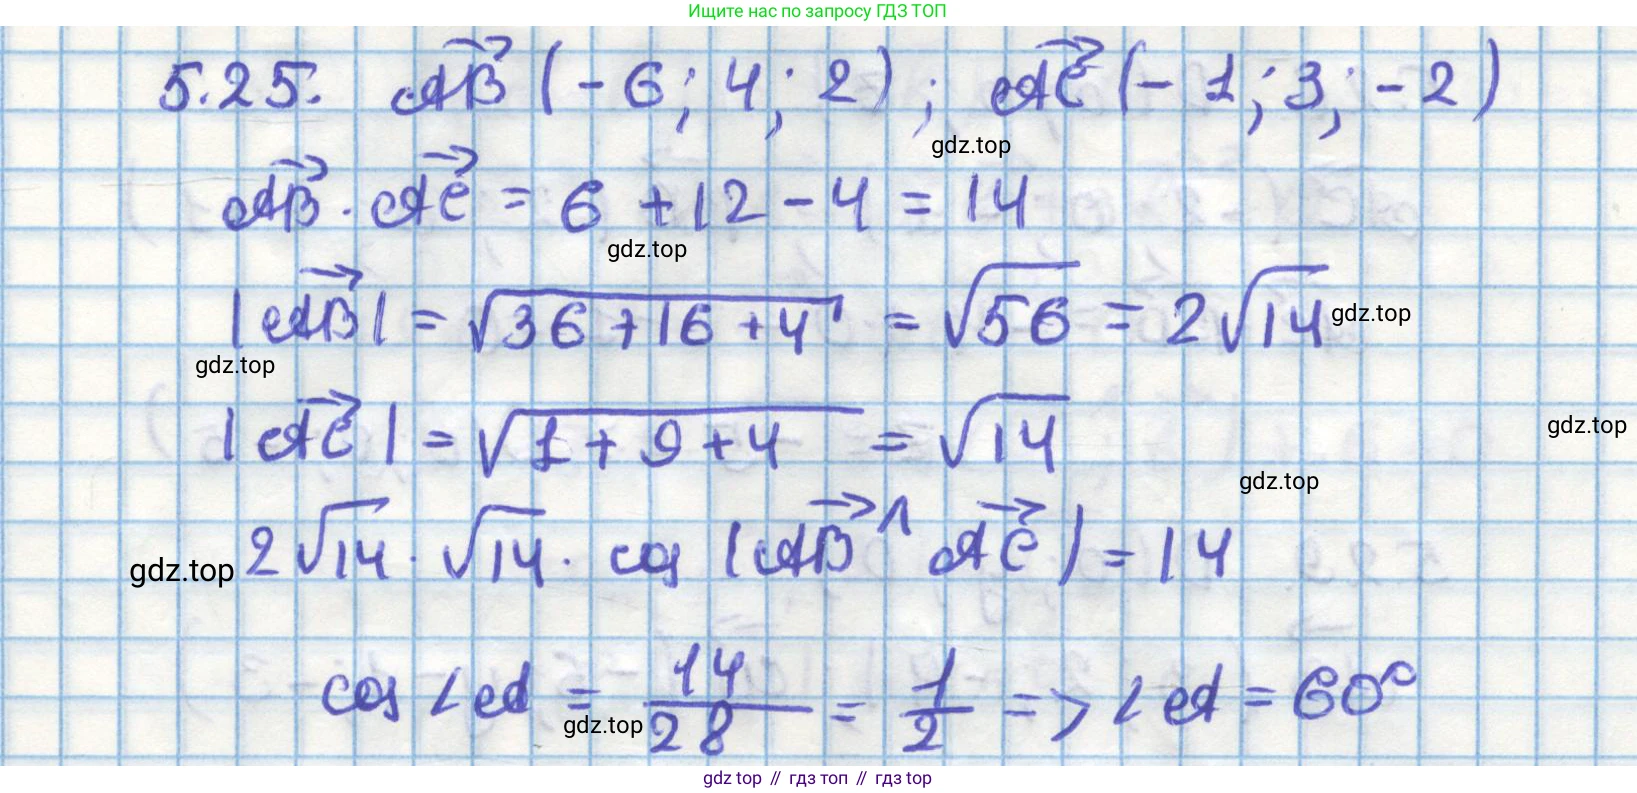 Ищите нас по запросу ГДЗ ТОП
5.25. AB (-6; 4; 2); AC (-1; 3; -2)
gdz.top
AB · AC = 6 + 12 - 4 = 14
gdz.top
|AB| = √36 + 16 + 4 = √56 = 2√14 gdz.top
gdz.top
|AC| = √1 + 9 + 4 = √14
gdz.top
gdz.top
gdz.top 2√14 · √14 · cos (AB ^ AC) = 14
cos ∠A = 14/28 = 1/2 => ∠A = 60°
gdz.top
gdz top // гдз топ // гдз top